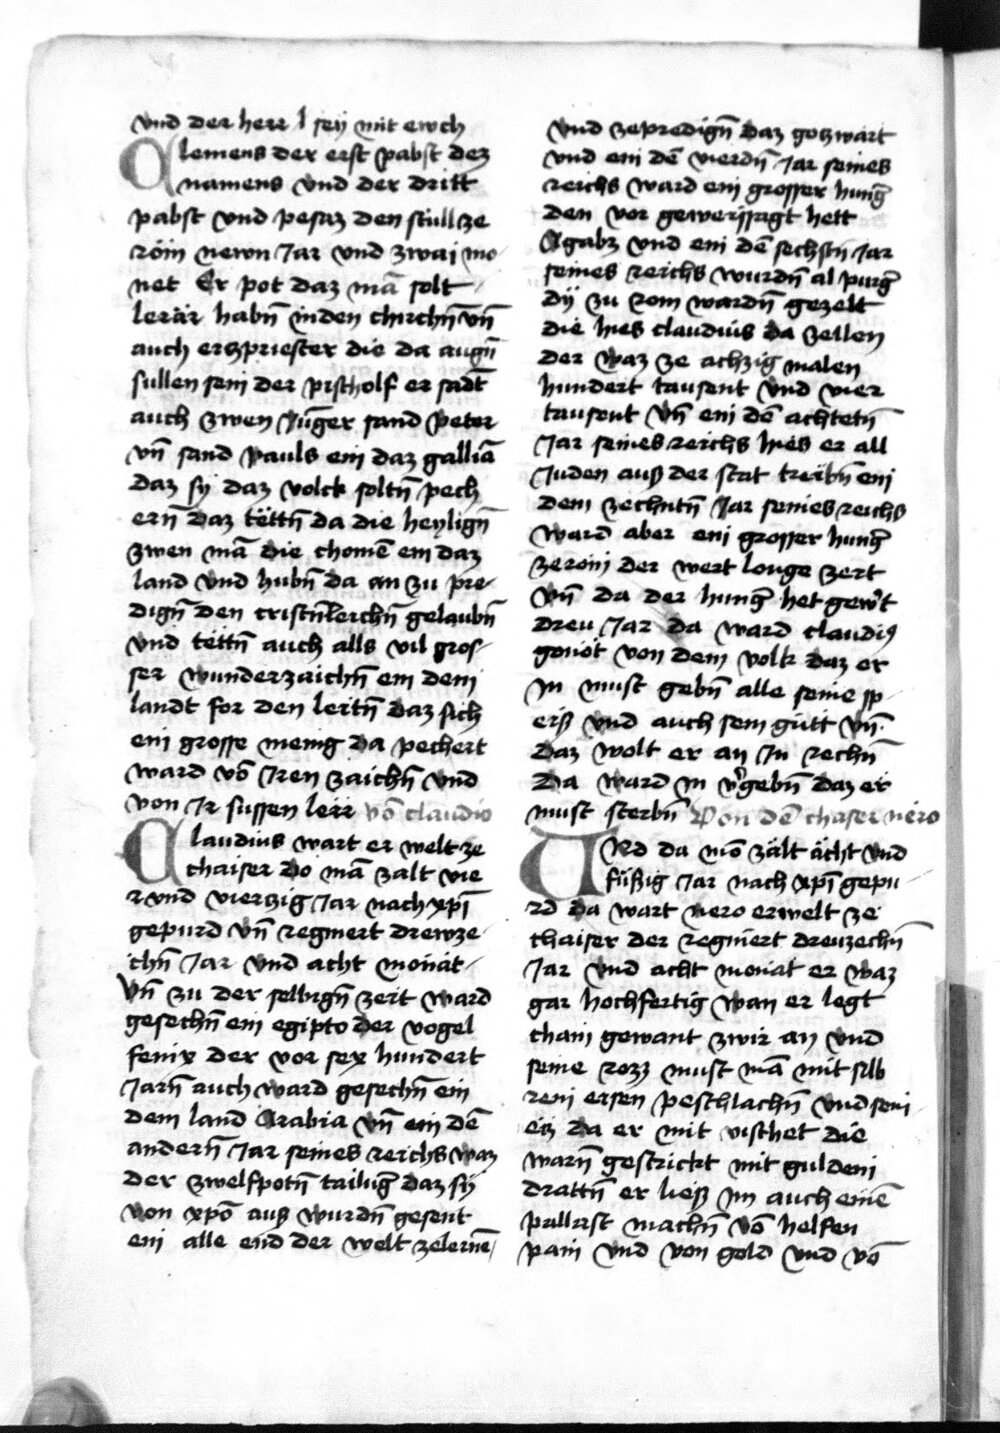 vnd der herr l seÿ mit ewch
Clemens der erst pabst dez
namens vnd der dritt
pabst vnd pesaz den stull ze
röm newn Jar vnd zwai mo
net Er pot daz mā solt
lerär habn̄ in den chirchn̄ vn̄
auch erczpriester die da augn̄
sullen sein der pischolf er sadt̄
auch zwen Jūger sand peter
vn̄ sand pauls ein daz galliā
daz sÿ daz volck soltn̄ pech
ern̄ daz tëttn̄ da die heylign̄
zwen mā die chomē ein daz
land vnd hubn̄ da an zu pre
dign̄ den cristnlerchn̄ gelaubn̄
vnd tëttn̄ auch alls vil gros
ser wunderzaichn̄ ein dem
landt for den leitn̄ daz sich
ein grosse menig da pechert
ward vō Jren zaichn̄ vnd
von Jr sussen lerr vō claudio
Claudius wart er welt ze
chaiser do mā zalt vie
r vnd vierzig Jar nach xpī
gepurd vn̄ regniert drewze
chn̄ Jar vnd acht monat
Vn̄ zu der selbign̄ zeit ward
gesechn̄ ein egipto der vogel
fenix der vor sex hundert
Jarn̄ auch ward gesechn̄ ein
dem land Arabia vn̄ ein dē
andern̄ Jar seines reichs waz
der zwelfpotn̄ tailūg daz sÿ
von xpō auz wurdn̄ gesent
ein alle end der welt zelernē
vnd zepredign̄ daz goczwart
vnd ein dē vierdn̄ Jar seines
reichs ward ein grosser hunḡ
den vor geweissagt hett
Agabz vnd ein dē sechstn̄ Jar
seines reichs wurdn̄ al purḡ
dÿ zu rom wardn̄ gezelt
die hies claudius da zellen
der waz ze achzig malen
hundert tausent vnd vier
tausent vn̄ ein dē achtetn̄
Jar seines reichs hies er all
Juden auß der stat treibn̄ ein
dem zechntn̄ Jar seines reichs
ward aber ein grosser hunḡ
ze rom der wert lange zeit
vn̄ da der hunḡ het gew't
dreu Jar da ward claudiꝰ
genöt von dem volk daz er
in must gebn̄ alle seine sp
eiß vnd auch sein gütt vn̄
daz wolt er an Jn rechn̄
Da ward in v'gebn̄ daz er
must sterbn̄ Von dē chaser nero
Vnd da mō zält ächt vnd
füßig Jar nach xpī gepu
rd da wart nero erwelt ze
chaiser der regniert dreuzechn̄
Jar vnd acht monat er waz
gar hochfertig wan er legt
chain gewant zwir an vnd
seine rozz must mā mit silb
rein eisen peschlachn̄ vnd sein
eiz da er mit vischet die
warn̄ gestrickt mit guldein
drattn̄ er liesß im auch einē
pallast machn̄ vō helfen
pain vnd von gold vnd vō